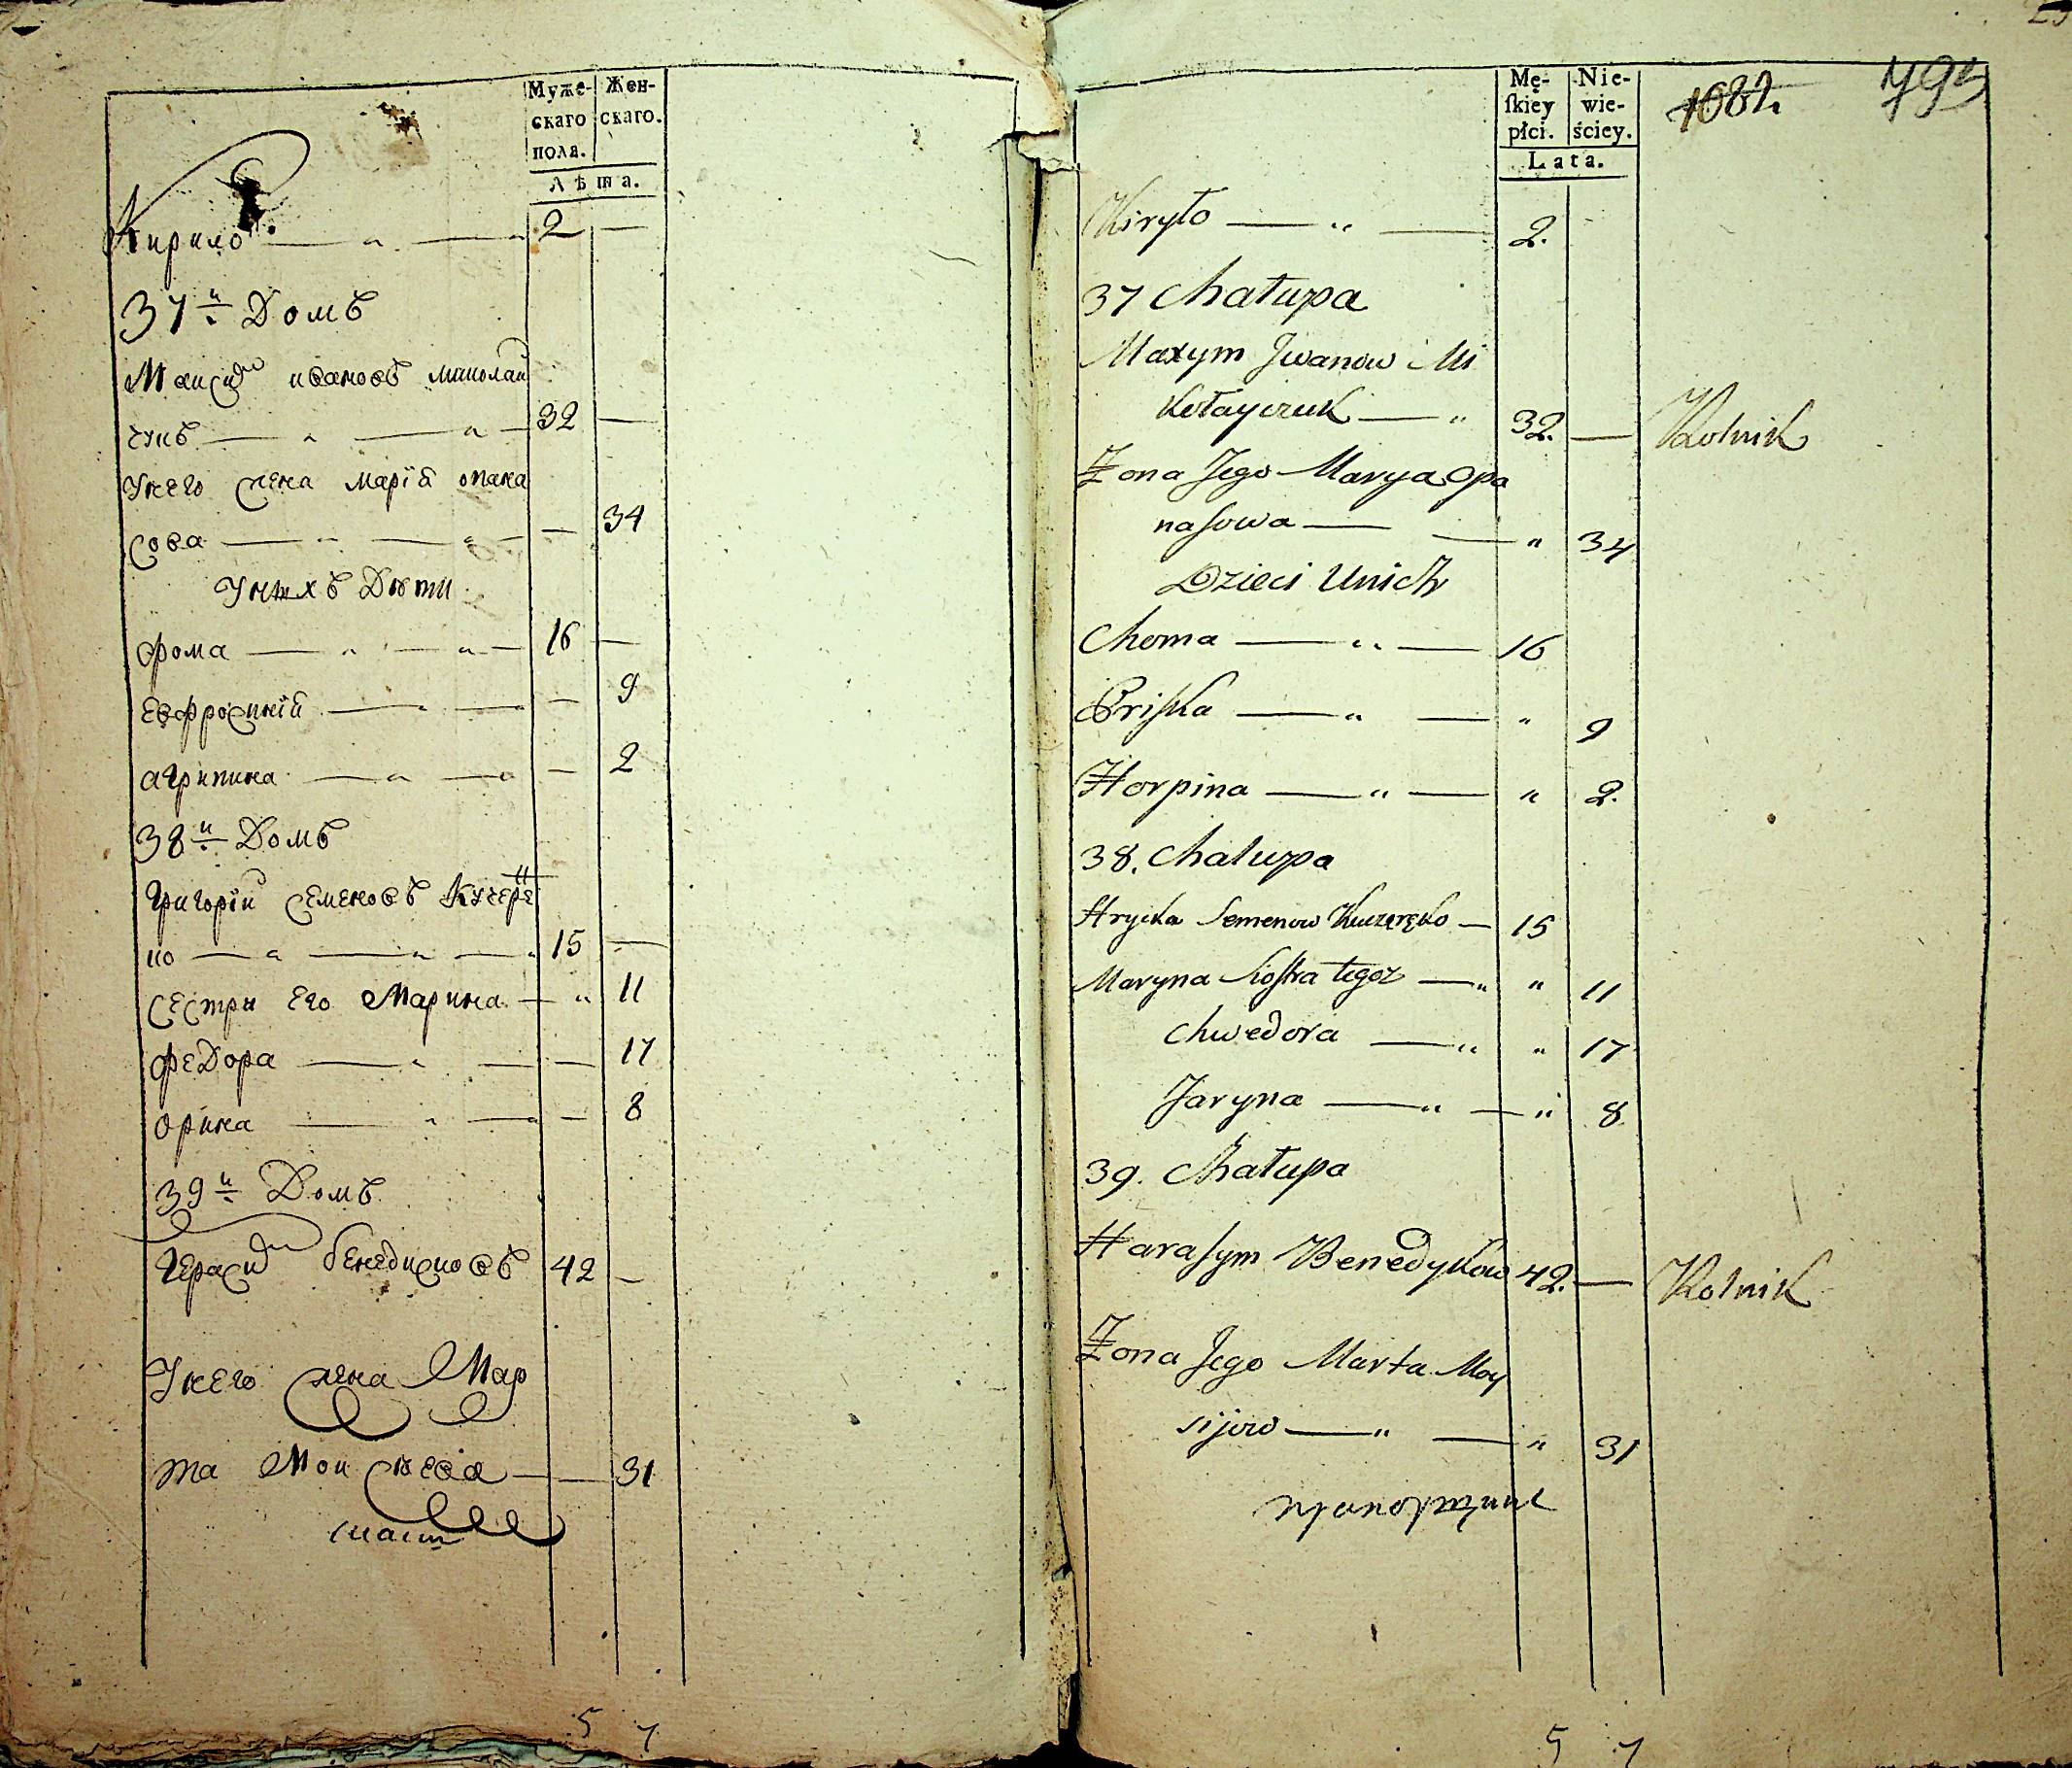 Муже- Жен-
скаго скаго.
поля.
Лѣта.
Кирило — „ — „ 2 —
37й Домъ
Максим ивановъ миколай
чукъ — „ — „ — 32 —
Унего жена Марїѣ опана
сова — „ — „ — — 34
Унихъ Дѣти
Фома — „ — „ — 16 —
Евфросинїѣ — „ — „ — 9
агрипина — „ — „ — 2
38й Домъ
Григорїй Семеновъ Кучере
но — „ — „ — „ 15 —
Сестри Его Марина — „ 11
Федора — „ — — 17
Орина — „ — „ — 8
39й Домъ
Герасим бенедиковъ 42 —
Унего жена Мар
та Мойсѣева — — 31
5 7
Mę- Nie-
ſkiey wie-
płci. ściey.
Lata.
1081. 795
Kiryło — „ — 2.
37 Chałupa
Maxym Jwanow Mi
kołayczuk — „ 32. — Rolnik
Żona Jego Marya Opa
naſowa — — „ 34
Dzieci Unich
Choma — „ — 16
Priſka — „ — „ 9
Horpina — „ — „ 2.
38. Chalupa
Hrycka Semenow Kuczeręko — 15
Maryna Sioſtra tegoz — „ „ 11
Chwedora — „ „ 17
Jaryna — „ — „ 8
39. Chałupa
Haraſym Benedykow 42. — Rolnik
Żona Jego Marta Moy
sijow — „ — „ 31
прапорщикъ
5 7